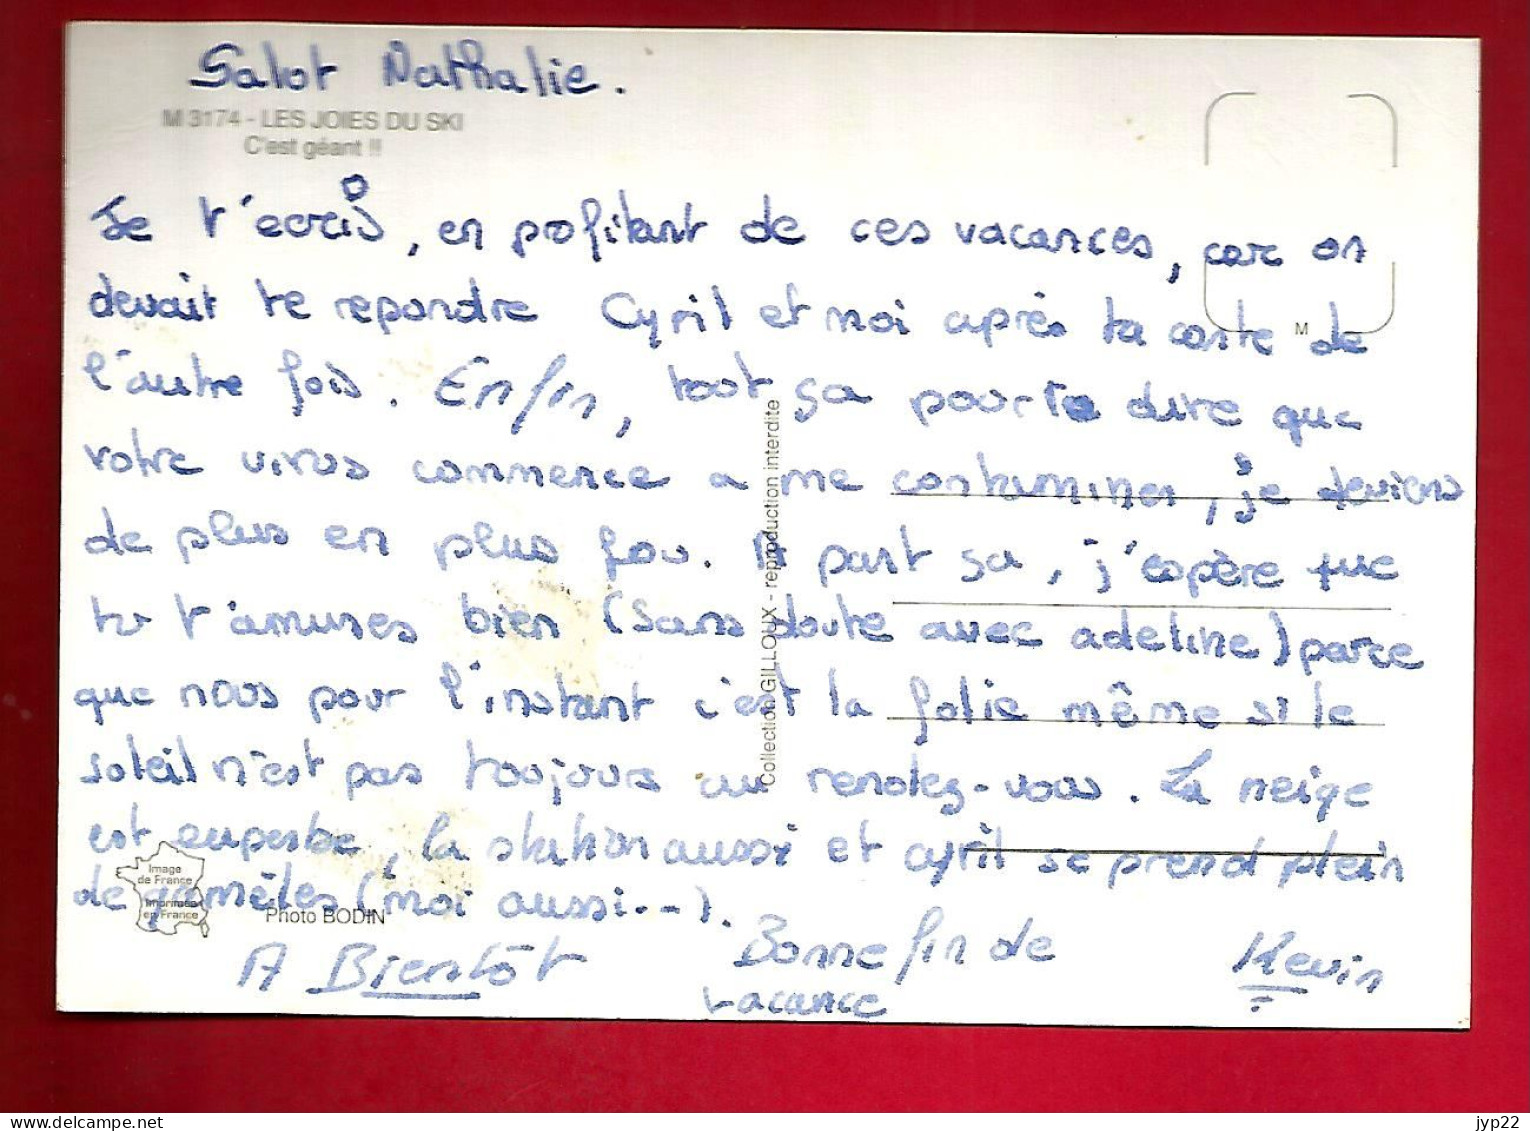 Salut Nathalie.
M 3174 - LES JOIES DU SKI
C'est géant !!
Je t'écris, en profitant de ces vacances, car on
devait te repondre Cyril et moi après ta carte de
l'autre fois. Enfin, tout sa pour te dire que
votre virus commence a me contaminer, je deviens
de plus en plus fou. A part sa, j'espère que
tu t'amuses bien (sans doute avec adeline) parce
que nous pour l'instant c'est la folie même si le
soleil n'est pas toujours au rendez-vous. La neige
est superbe, la station aussi et cyril se prend plein
de gamèles (moi aussi...).
A Bientôt
Bonne fin de
vacance
Kevin
M
Collection GILLOUX - reproduction interdite
Image
de France
Imprimée
en France
Photo BODIN
jyp22